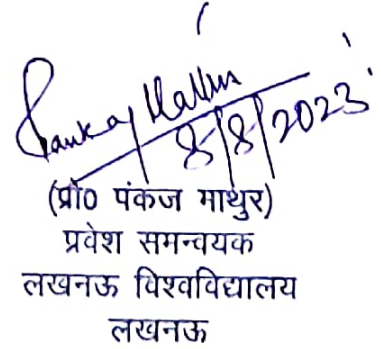 Pankaj Mathur
8/8/2023
(प्रो0 पंकज माथुर)
प्रवेश समन्वयक
लखनऊ विश्वविद्यालय
लखनऊ